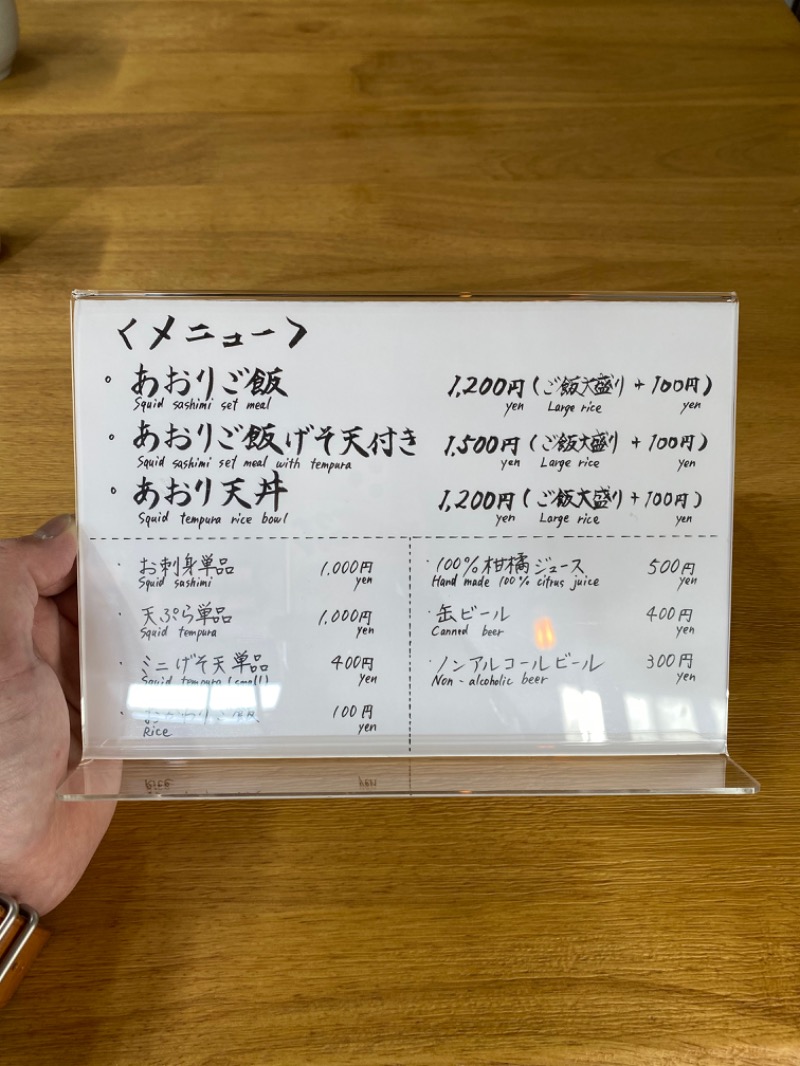 〈メニュー〉
・あおりご飯 1,200円(ご飯大盛り+100円)
Squid sashimi set meal yen Large rice yen
・あおりご飯げそ天付き 1,500円(ご飯大盛り+100円)
Squid sashimi set meal with tempura yen Large rice yen
・あおり天丼 1,200円(ご飯大盛り+100円)
Squid tempura rice bowl yen Large rice yen
・お刺身単品 1,000円
Squid sashimi yen
・天ぷら単品 1,000円
Squid tempura yen
・ミニげそ天単品 400円
Squid tempura (small) yen
・おかわりご飯 100円
Rice yen
・100%柑橘ジュース 500円
Hand made 100% citrus juice yen
・缶ビール 400円
Canned beer yen
・ノンアルコールビール 300円
Non-alcoholic beer yen